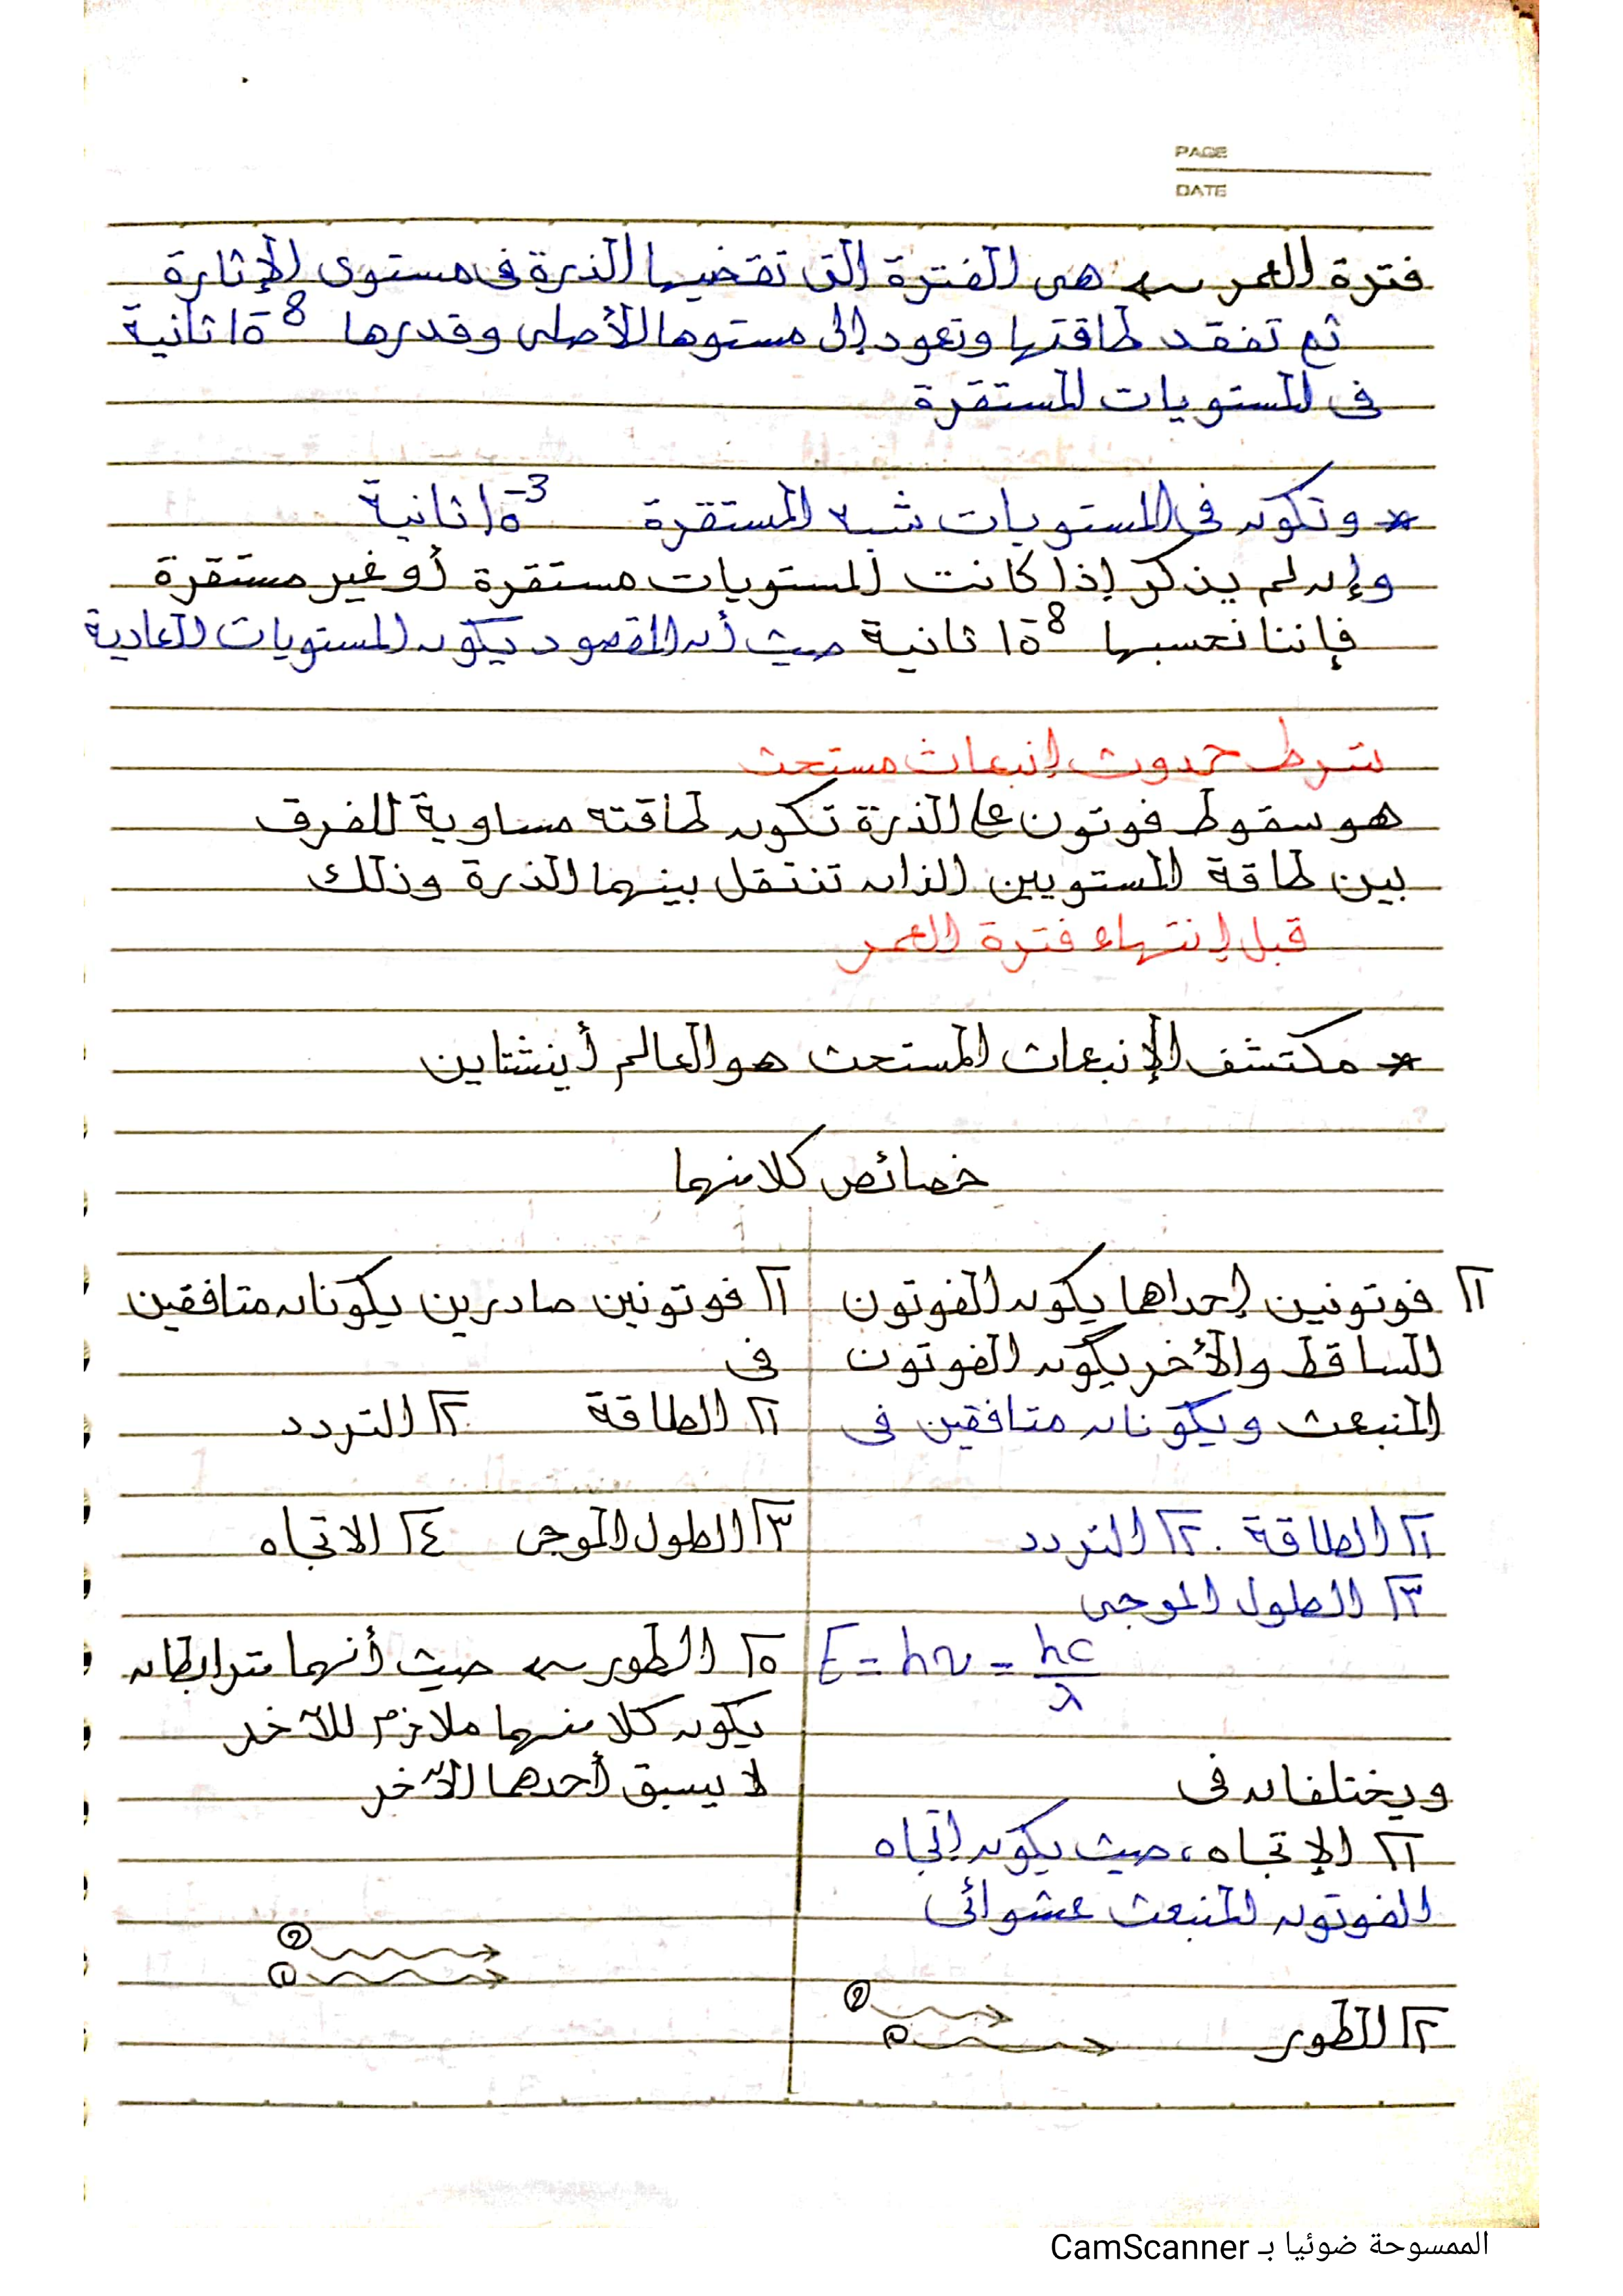 PAGE
DATE
فترة العمر ← هى الفترة التى تقضيها الذرة فى مستوى الإثارة
ثم تفقد طاقتها وتعود إلى مستوها الأصلى وقدرها 10⁻⁸ ثانية
فى المستويات المستقرة
* وتكون فى المستويات شبه المستقرة 10⁻³ ثانية
وإن لم يذكر إذا كانت المستويات مستقرة أو غير مستقرة
فإننا نحسبها 10⁻⁸ ثانية حيث أن المقصود يكون المستويات العادية
شرط حدوث إنبعاث مستحث
هو سقوط فوتون على الذرة تكون طاقته مساوية للفرق
بين طاقة المستويين الذان تنتقل بينهما الذرة وذلك
قبل إنتهاء فترة العمر
* مكتشف الإنبعاث المستحث هو العالم أينشتاين
خصائص كلا منهما
١] فوتونين إحداها يكون الفوتون
الساقط والأخر يكون الفوتون
المنبعث ويكونان متافقين فى
١] الطاقة . ٢] التردد
٣] الطول الموجى
E = hν = hc/λ
ويختلفان فى
١] الإتجاه ، حيث يكون إتجاه
الفوتون المنبعث عشوائى
٢] الطور
② 
①
١] فوتونين صادرين يكونان متافقين
فى
١] الطاقة ٢] التردد
٣] الطول الموجى ٤] الاتجاه
٥] الطور ← حيث أنهما مترابطان
يكون كلا منهما ملازم للآخر
لا يسبق أحدهما الآخر
②
①
الممسوحة ضوئيا بـ CamScanner